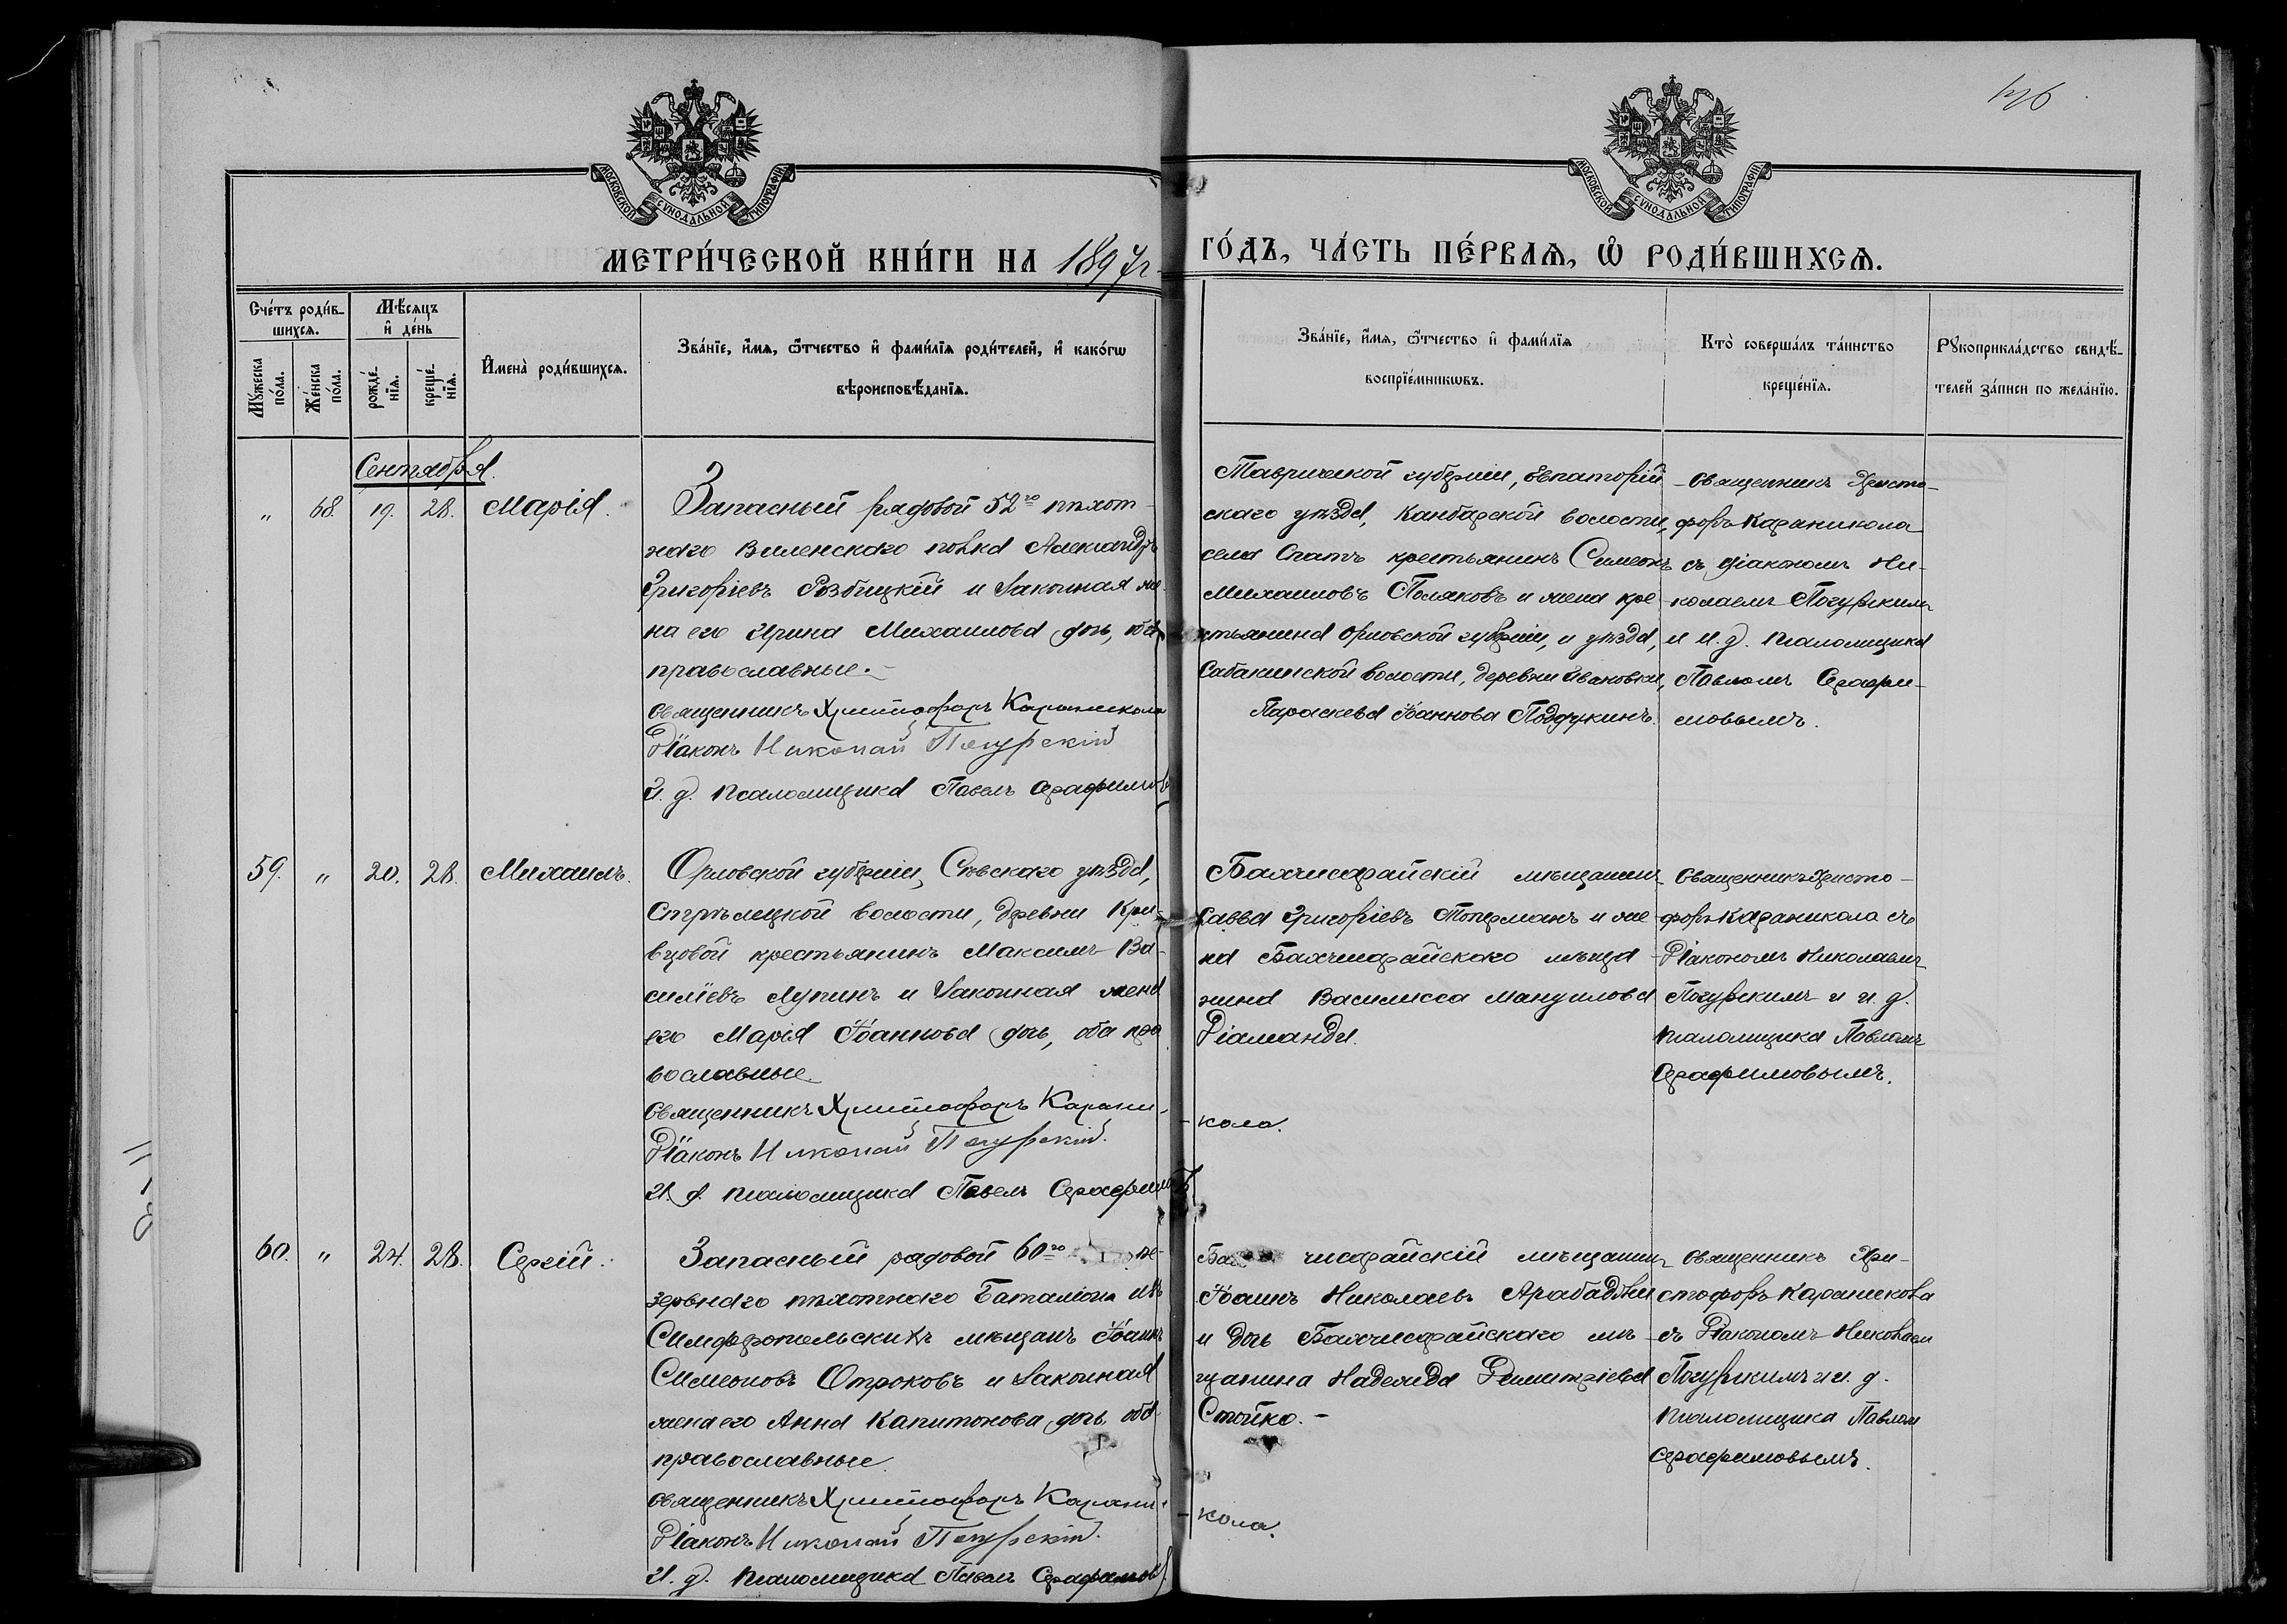 176
МОСКОВСКОЙ СѴНОДАЛЬНОЙ ТИПОГРАФІИ
МОСКОВСКОЙ СѴНОДАЛЬНОЙ ТИПОГРАФІИ
МЕТРИ́ЧЕСКОЙ КНИ́ГИ НА 1897 г.
ГО́ДЪ, ЧА́СТЬ ПЕ́РВАѦ, Ѡ҆ РОДИ́ВШИХСѦ.
Сче́тъ роди́в-
шихсѧ.
Мѣ́сѧцъ
и҆ де́нь
Мꙋ́жеска по́ла.
Же́нска по́ла.
рожде́-
нїѧ.
креще́-
нїѧ.
И҆мена̀ роди́вшихсѧ.
Зва́нїе, и҆́мѧ, ѻ҆́тчество и҆ фами́лїѧ роди́телей, и҆ како́гѡ
вѣроисповѣ́данїѧ.
Зва́нїе, и҆́мѧ, ѻ҆́тчество и҆ фами́лїѧ
воспрїе́мникѡвъ.
Кто̀ соверша́лъ та́инство
креще́нїѧ.
Рꙋкоприкла́дство свидѣ́-
телей за́писи по жела́нїю.
Сентября.
„ 68. 19. 28. Марія.
Запасный рядовой 52го пѣхот-
наго Виленскаго полка Александръ
Григоріевъ Розбицкій и законная же-
на его Ирина Михаилова дочь, оба
православные.
Священникъ Христофоръ Караникола
Діаконъ Николай Погурскій
И. д. псаломщика Павелъ Серафимовъ
Таврической губерніи, Евпаторій-
скаго уѣзда, Камбарской волости,
села Спатъ крестьянинъ Симеонъ
Михаиловъ Поляковъ и жена кре-
стьянина Орловской губерніи, и уѣзда,
Сабакинской волости, деревни Ивановки,
Параскева Іоаннова Поддукинъ.
Священникъ Христо-
форъ Караникола
съ діакономъ Ни-
колаемъ Погурскимъ
и и. д. псаломщика
Павломъ Серафи-
мовымъ.
59. „ 20. 28. Михаилъ.
Орловской губерніи, Сѣвскаго уѣзда,
Стрѣлецкой волости, деревни Кри-
вцовой крестьянинъ Максимъ Ва-
силіевъ Лупинъ и законная жена
его Марія Іоаннова дочь, оба пра-
вославные
Священникъ Христофоръ Карани-
кола.
Діаконъ Николай Погурскій.
И. д. псаломщика Павелъ Серафимовъ
Бахчисарайскій мѣщанинъ
Савва Григоріевъ Топцманъ и же-
на Бахчисарайскаго мѣща-
нина Василисса Мануилова
Діаманди.
Священникъ Христо-
форъ Караникола съ
Діакономъ Николаемъ
Погурскимъ и и. д.
псаломщика Павломъ
Серафимовымъ.
60. „ 24. 28. Сергій.
Запасный рядовой 60го ре-
зервнаго пѣхотнаго Баталіона изъ
Симферопольскихъ мѣщанъ Іоаннъ
Симеоновъ Отроковъ и законная
жена его Анна Капитонова дочь оба
православные.
Священникъ Христофоръ Карани-
кола.
Діаконъ Николай Погурскій.
И. д. псаломщика Павелъ Серафимовъ.
Бахчисарайскій мѣщанинъ
Іоаннъ Николаевъ Арабаджи
и дочь Бахчисарайскаго мѣ-
щанина Надежда Димитріева
Стойко.
Священникъ Хри-
стофоръ Караникола
съ Діакономъ Николаемъ
Погурскимъ и и. д.
псаломщика Павломъ
Серафимовымъ.